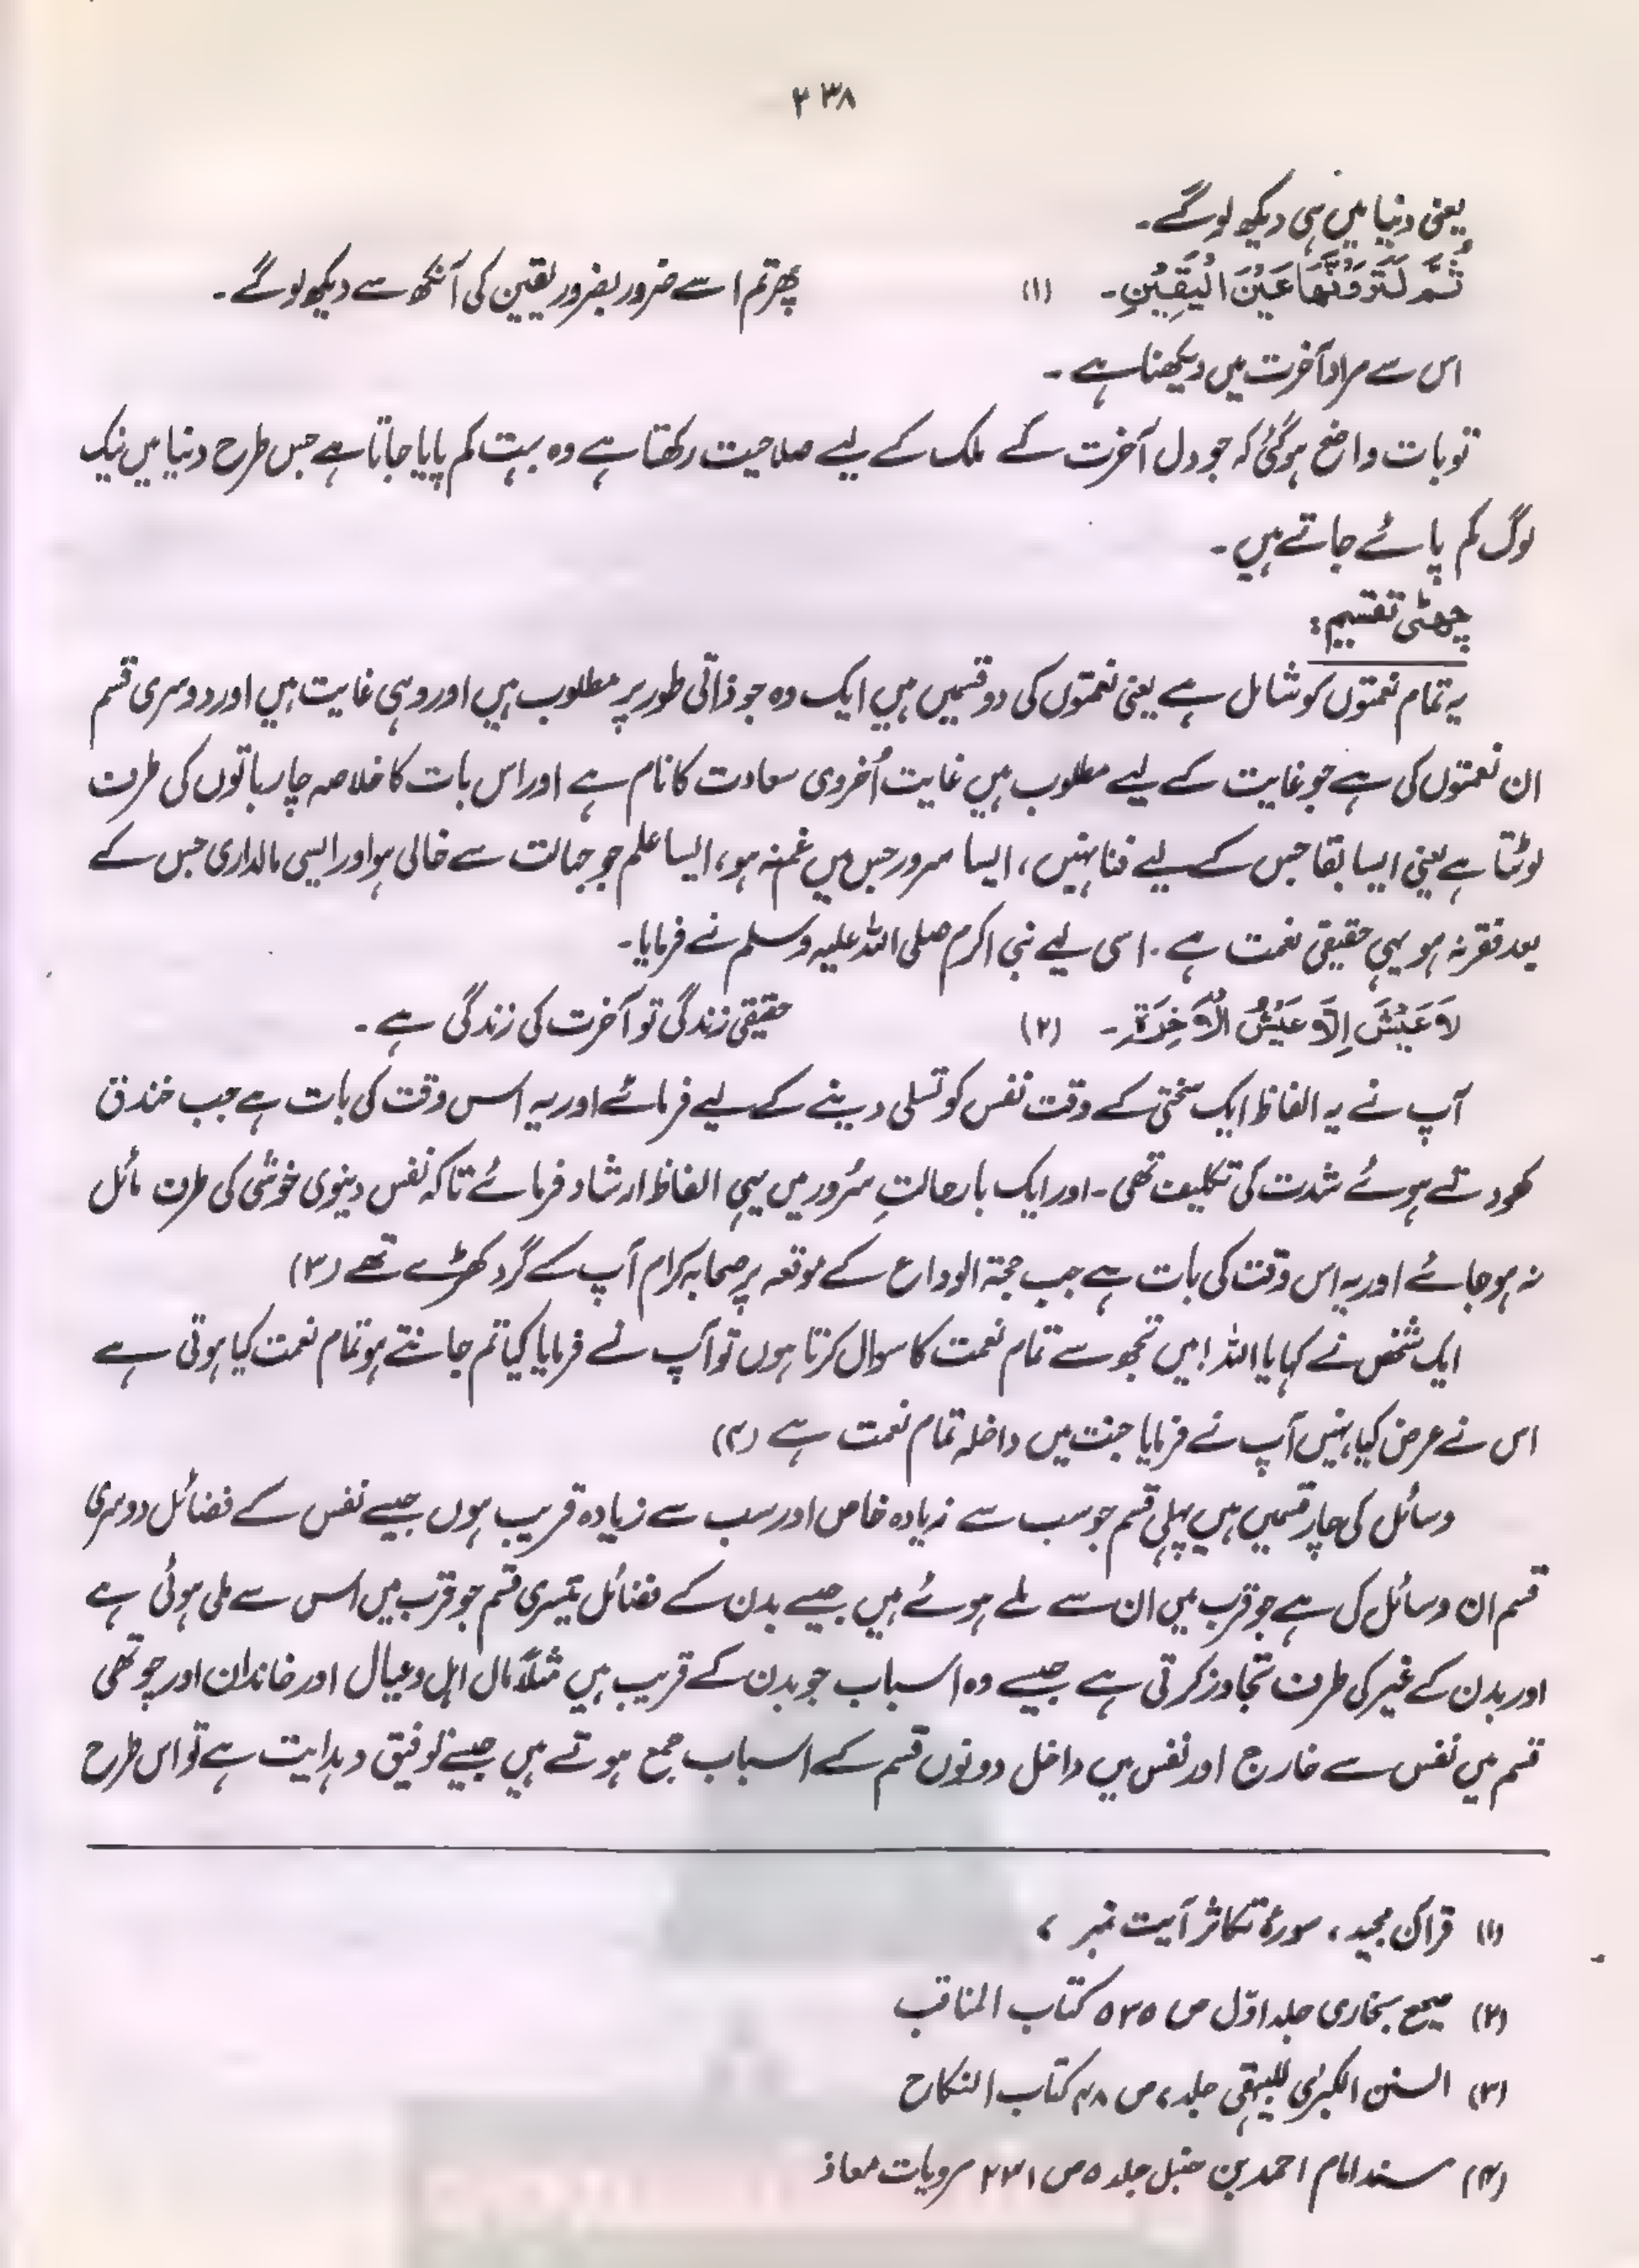 ۲۳۸
یعنی دنیا میں ہی دیکھ لو گے۔
ثُمَّ لَتَرَوُنَّهَا عَيْنَ الْيَقِيْنِ۔ (۱) پھر تم اسے ضرور بضرور یقین کی آنکھ سے دیکھ لو گے۔
اس سے مراد آخرت میں دیکھنا ہے۔
تو بات واضح ہو گئی کہ جو دل آخرت کے ملک کے لیے صلاحیت رکھتا ہے وہ بہت کم پایا جاتا ہے جس طرح دنیا میں نیک
لوگ کم پائے جاتے ہیں۔
چھٹی تقسیم:
یہ تمام نعمتوں کو شامل ہے یعنی نعمتوں کی دو قسمیں ہیں ایک وہ جو ذاتی طور پر مطلوب ہیں اور وہی غایت ہیں اور دوسری قسم
ان نعمتوں کی ہے جو غایت کے لیے مطلوب ہیں غایت اُخروی سعادت کا نام ہے اور اس بات کا خلاصہ چار باتوں کی طرف
لوٹتا ہے یعنی ایسا بقا جس کے لیے فنا نہیں، ایسا سرور جس میں غم نہ ہو، ایسا علم جو جہالت سے خالی ہو اور ایسی مالداری جس کے
بعد فقر نہ ہو یہی حقیقی نعمت ہے۔ اسی لیے نبی اکرم صلی اللہ علیہ وسلم نے فرمایا۔
لَا عَيْشَ اِلَّا عَيْشُ الْاٰخِرَةِ۔ (۲) حقیقی زندگی تو آخرت کی زندگی ہے۔
آپ نے یہ الفاظ ایک سختی کے وقت نفس کو تسلی دینے کے لیے فرمائے اور یہ اس وقت کی بات ہے جب خندق
کھودتے ہوئے شدت کی تکلیف تھی۔ اور ایک بار حالتِ سُرور میں یہی الفاظ ارشاد فرمائے تاکہ نفس دینوی خوشی کی طرف مائل
نہ ہو جائے اور یہ اس وقت کی بات ہے جب حجۃ الوداع کے موقعہ پر صحابہ کرام آپ کے گرد کھڑے تھے (۳)
ایک شخص نے کہا یا اللہ! میں تجھ سے تمام نعمت کا سوال کرتا ہوں تو آپ نے فرمایا کیا تم جانتے ہو تمام نعمت کیا ہوتی ہے
اس نے عرض کیا نہیں آپ نے فرمایا جنت میں داخلہ تمام نعمت ہے (۴)
وسائل کی چار قسمیں ہیں پہلی قسم جو سب سے زیادہ خاص اور سب سے زیادہ قریب ہوں جیسے نفس کے فضائل دوسری
قسم ان وسائل کی ہے جو قرب میں ان سے ملے ہوئے ہیں جیسے بدن کے فضائل تیسری قسم جو قرب میں اس سے ملی ہوئی ہے
اور بدن کے غیر کی طرف تجاوز کرتی ہے جیسے وہ اسباب جو بدن کے قریب ہیں مثلاً مال اہل و عیال اور خاندان اور چوتھی
قسم میں نفس سے خارج اور نفس میں داخل دونوں قسم کے اسباب جمع ہوتے ہیں جیسے توفیق و ہدایت ہے تو اس طرح
(۱) قرآن مجید، سورۂ تکاثر آیت نمبر ۷
(۲) صحیح بخاری جلد اوّل ص ۵۳۵ کتاب المناقب
(۳) السنن الکبریٰ للبیہقی جلد ۷ ص ۴۸ کتاب النکاح
(۴) مسند امام احمد بن حنبل جلد ۵ ص ۲۳۱ مرویات معاذ